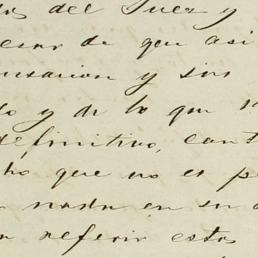 del Juez y
de que asi
y sin
y de lo que
definitivo, cont
ho que no es p
nada en su
referir estos